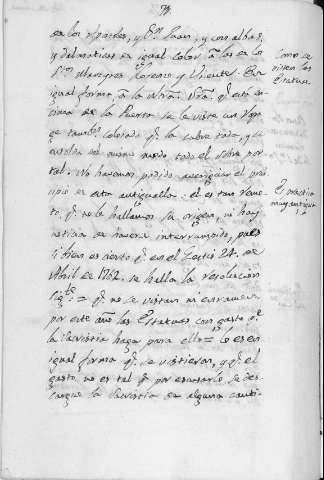 en los Apostoles, y Sn. Juan, y con albas,
y dalmaticas en igual color á las en los
Stos. Martyres Lorenzo y Vicente. En
igual forma, á la Ntra. Sra. qe. está en-
cima de la Puerta se la viste un ropa
ge tambn. colorado qe. la cubre toda, y se
entolda del mismo modo todo el sobre por-
tal. No havemos podido averiguar el prin
cipio de esta antiqualla: él es tan remo-
to, qe. no le hallamos su origen, ni hay
noticia de haverse interrumpido, pues
si bien es cierto qe. en el 24. de
Abril de 1762. se halla la resolucion
sigte. = qe. no se vistan ni enramen
por este año las Estatuas con gasto qe.
la Sacristia haga para ello = lo es en
igual forma qe. se vistieron, y qe. el
gasto no es tal qe. por escusarlo se des-
cargue la Sacristia de alguna canti-
Como se
visten las
Estatuas
Es práctica
muy antigua